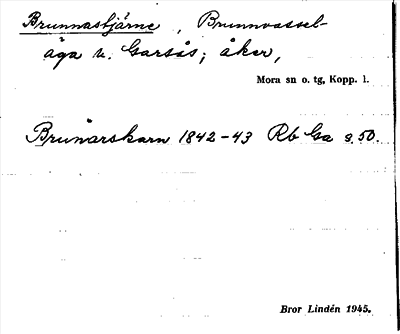 Brunnastjärne, Brunnvassel-
äga n. Garsås; åker,
Mora sn o. tg, Kopp. l.
Brunarskarn 1842-43 Rb Ga s. 50.
Bror Lindén 1945.